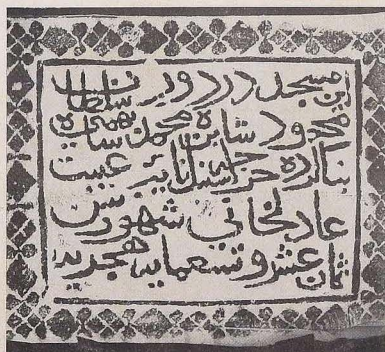 این مسجد در دور سلطان
محمود شاه بن محمد شاه بهمنی
بنا کرده نائب غیبت
عادلخانی شهور سن
ثمان عشر و تسعمایه هجریه